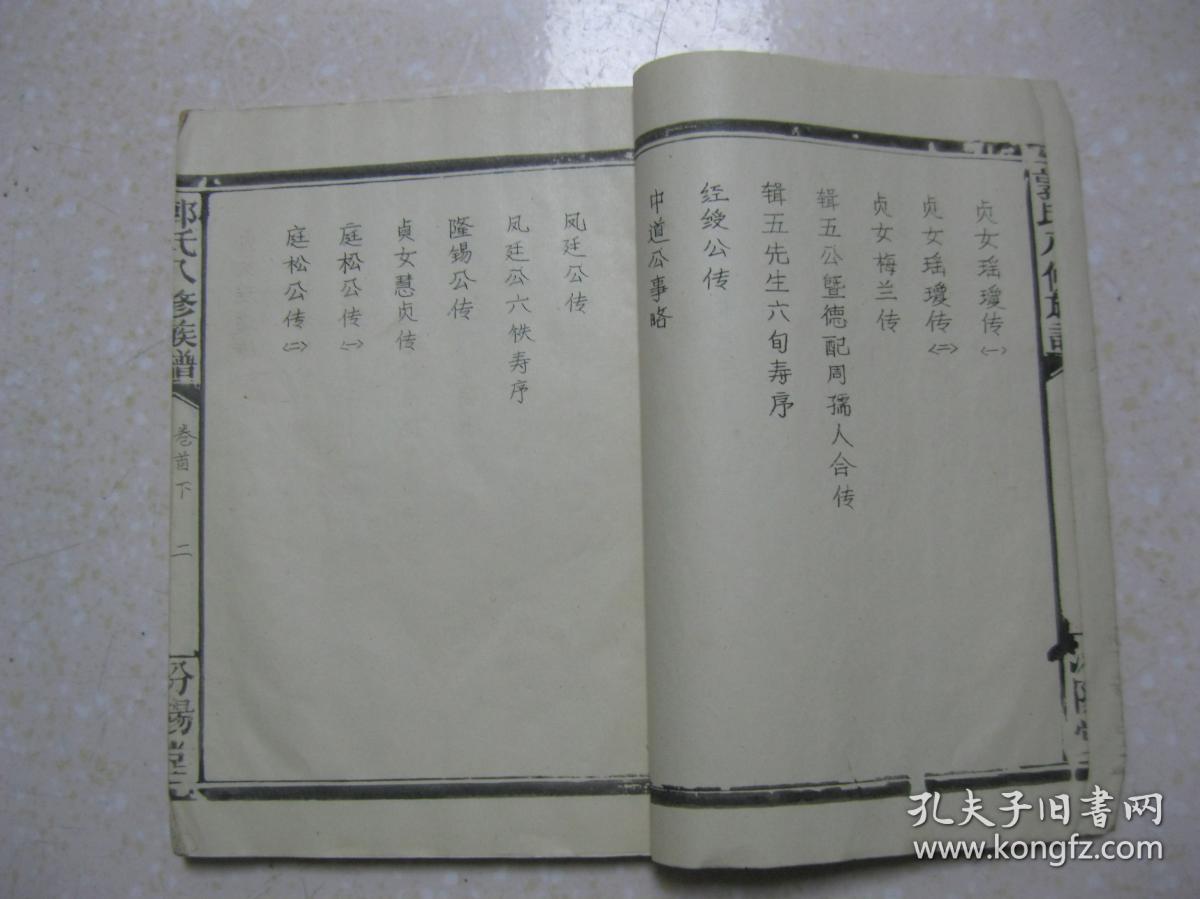 贞女瑶瓊传〈一〉
贞女瑶瓊传〈二〉
贞女梅兰传
辑五公暨德配周孺人合传
辑五先生六旬寿序
经绶公传
中道公事略
凤廷公传
凤廷公六帙寿序
隆锡公传
贞女慧贞传
庭松公传〈一〉
庭松公传〈二〉
郭氏八修族谱
卷首下
二
汾陽堂
孔夫子旧书网
www.kongfz.com